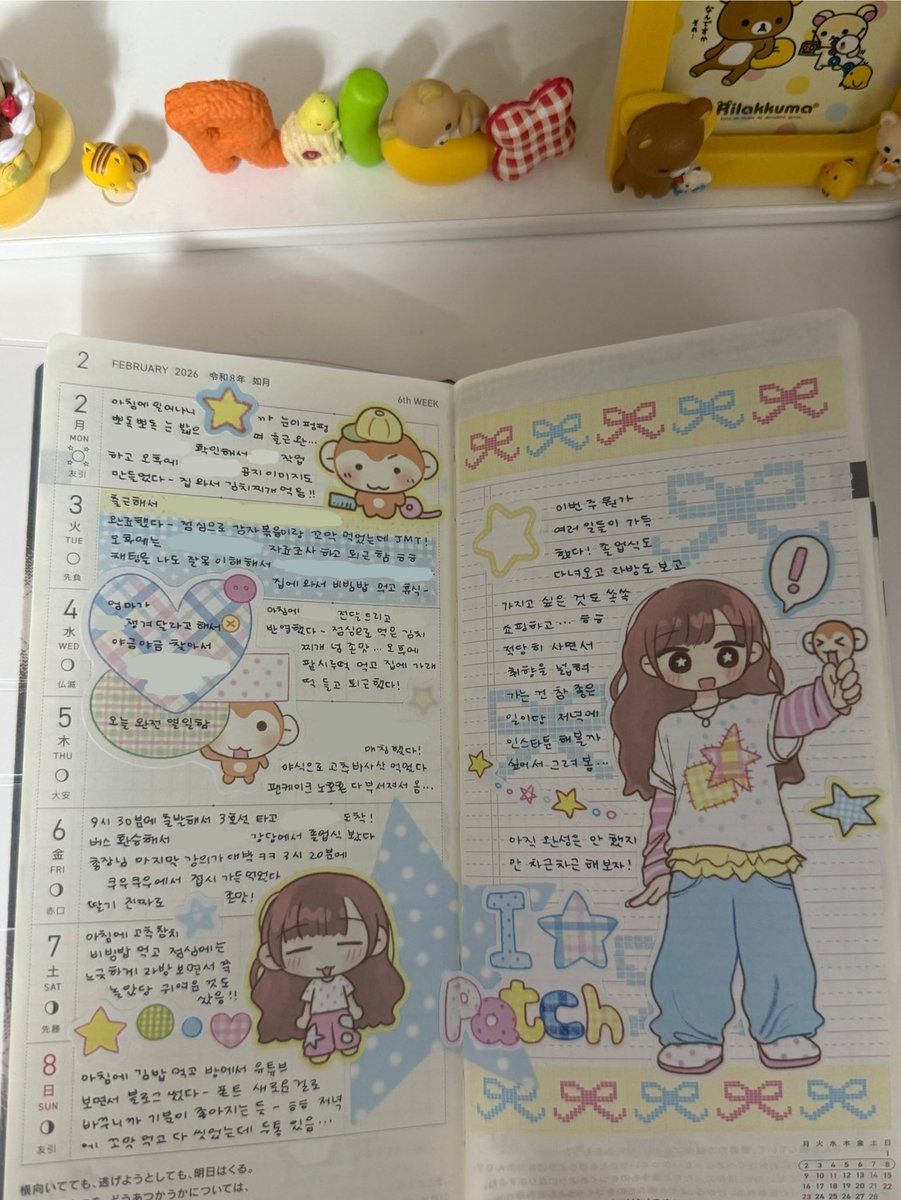 なんですか
それ!
Rilakkuma®
2
FEBRUARY 2026 令和8年 如月
6th WEEK
2
月
MON
友引
아침에 일어나니 가 눈이 펑펑
뽀독뽀독 눈 밟으 며 출근 완...
확인해서 작업
하고 오후에 공지 이미지도
만들었다- 집 와서 김치찌개 먹음!!
3
火
TUE
先負
출근해서
완료했다- 점심으로 감자볶음이랑 꼬막 먹었는데 JMT!
오후에는 자료조사 하고 퇴근함 승승
채팅을 나도 잘못 이해해서
집에 와서 비빔밥 먹고 휴식-
4
水
WED
仏滅
엄마가
챙겨 달라고 해서
야금야금 찾아서
아침에 전달드리고
반영했다- 점심으로 먹은 김치
찌개 넘 존맛... 오후에
팥시루떡 먹고 집에 가래
떡 들고 퇴근했다!
5
木
THU
大安
오늘 완전 열일함
매칭했다!
야식으로 고추바사삭 먹었다
팬케이크 노오픈 다 부서져서 옴...
6
金
FRI
赤口
9시 30분에 출발해서 3호선 타고 도착!
버스 환승해서 강당에서 졸업식 봤다
총장님 마지막 강의가 대박 ㅋㅋ 3시 20분에
쿠우쿠우에서 접시 가득 먹었다
딸기 진짜로 존맛!
7
土
SAT
先勝
아침에 고추참치
비빔밥 먹고 점심에는
느긋하게 라방 보면서 푹
놀았당 귀여운 것도
샀음!!
8
日
SUN
友引
아침에 김밥 먹고 방에서 유튜브
보면서 블로그 썼다- 폰트 새로운걸로
바꾸니까 기분이 좋아지는 듯- 승승 저녁
에 꼬맛 먹고 다 씻었는데 두통 있음...
横向いてても、逃げようとしても、明日はくる。
どうあつかうかについては、
이번 주 뭔가
여러 일들이 가득
했다! 졸업식도
다녀오고 라방도 보고
가지고 싶은 것도 쏙쏙
쇼핑하고.... 승승
적당히 사면서
취향을 넓혀
가는 건 참 좋은
일이단 저녁에
인스타툰 해볼까
싶어서 그려 봄...
아직 완성은 안 했지
만 차근차근 해보자!
!
I
Patch
月 火 水 木 金 土 日
1
2 3 4 5 6 7 8
9 10 11 12 13 14 15
16 17 18 19 20 21 22
23 24 25 26 27 28